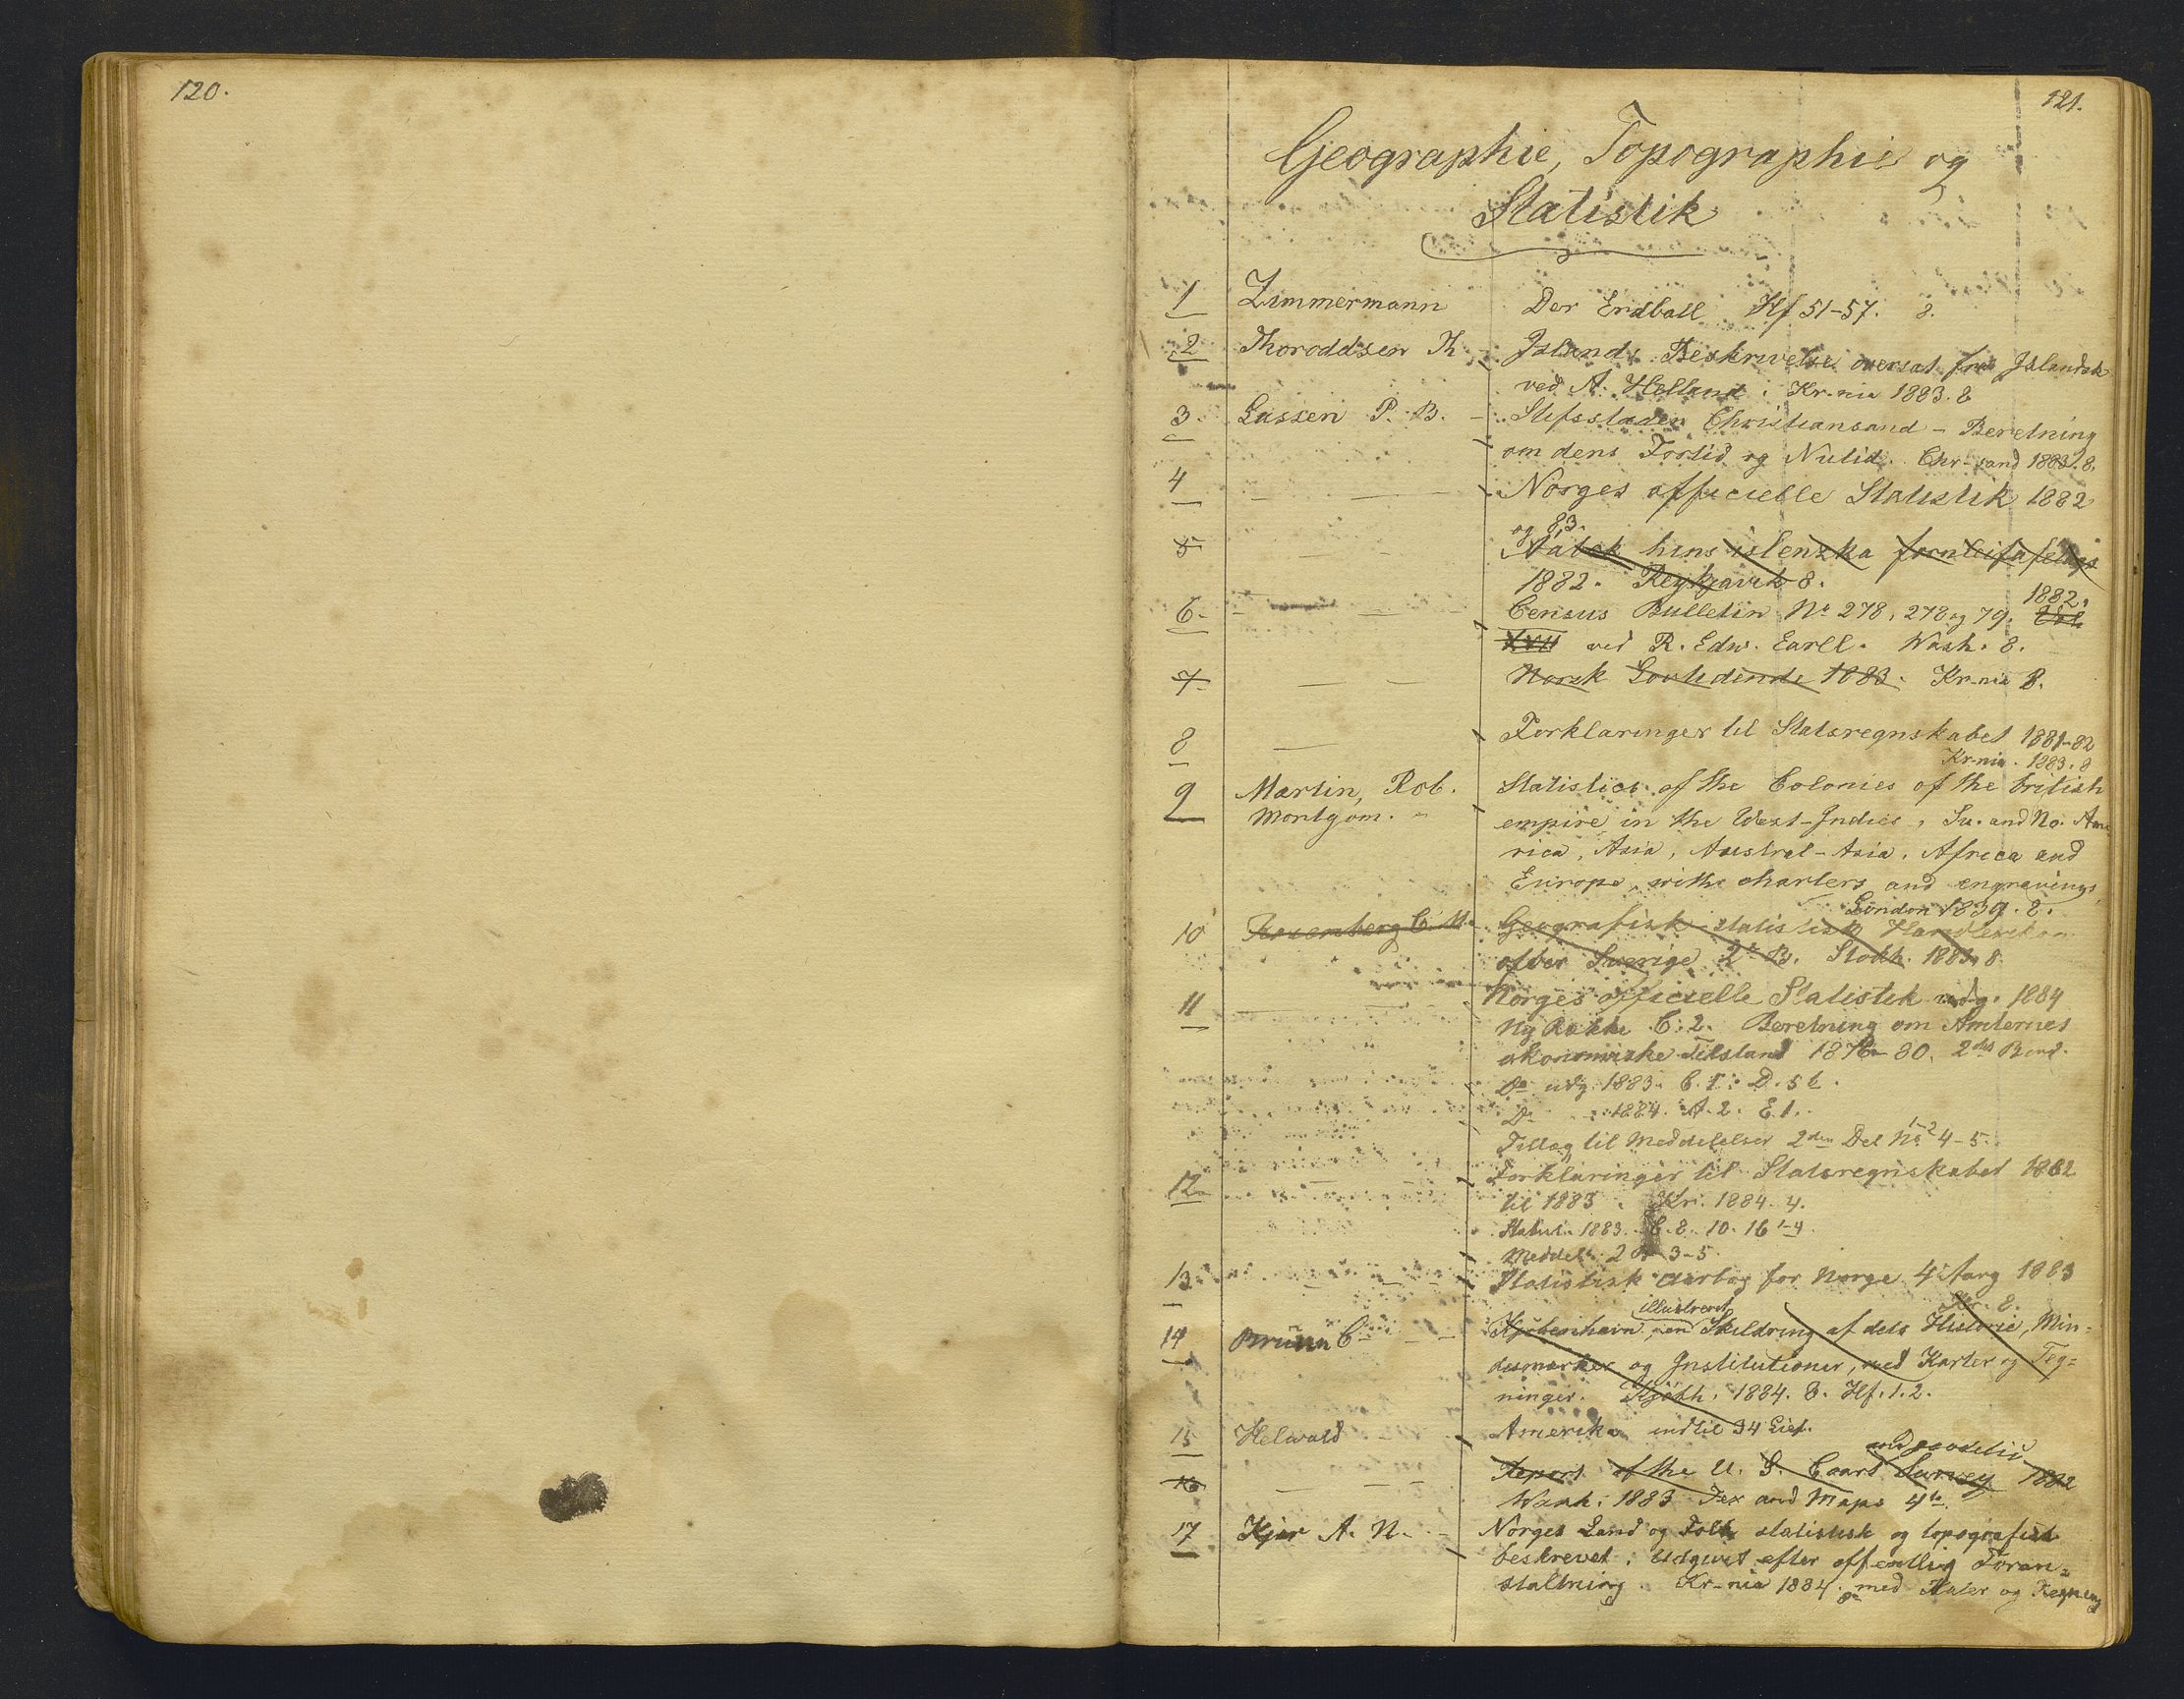 120.
121.
Geographie, Topographie og
Statistik
1 Zimmermann Der Erdball Hf 51-57. 8.
2 Thoroddsen Th - Islands Beskrivelse oversat fra Islandsk
ved A. Helland. Kr-nia 1883. 8
3 Lassen P. B. - Stifsstaden Christiansand - Beretning
om dens Fortid og Nutid. Chr-sand 1883. 8.
4 - - - Norges officielle Statistik 1882
og 83.
5 - - Árbok hins islenzka fornleifafelags
1882. Reykjavik 8.
1882.
6. - - - Census Bulletin No 278, 278 og 79. Vol
XVII ved R. Edw. Earll. Wash. 8.
7 - - Norsk Lovtidende 1883. Kr-nia 8.
8 - Forklaringer til Statsregnskabet 1881-82
Kr-nia. 1883. 8
9 Martin, Rob. Statistics of the Colonies of the british
Montgom. - empire in the West-Indies, Su. and No. Ame
rica, Asia, Austral-Asia, Africa and
Europe, with charters and engravings
London 1839. 8.
10 Rosenberg C. M. Geografisk-statistisk Handlexikon
ofver Sverige 2. B. Stokh. 1883. 8
11 - - - Norges officielle Statistik udg. 1884
Ny Række C. 2. Beretning om Amternes
økonomiske Tilstand 1876-80. 2det Bind.
Do udg. 1883. C. 1. D. 5 b.
Do - 1884. A. 2. E. 1.
Tillæg til Meddelelser 2den Del No 1-2 4-5.
12 - - - Forklaringer til Statsregnskabet 1882
til 1883. Kr. 1884. 4.
Statist. 1883. C. 8. 10. 16 1-4.
Meddel. 2 3-5.
13 - - - Statistisk Aarbog for Norge 4. Aarg 1883
Kr. 8.
illustreret
14 Bruun C - - Kjøbenhavn, en Skildring af dets Historie, Min-
desmærker og Institutioner, med Karter og Teg=
ninger. Kjøbh. 1884. 8. Hf. 1. 2.
15 Helwald Amerika indtil 34 Lief.
and geodetic
16 - - - Report of the U. S. Coast Survey 1882
Wash. 1883 Tex and Maps 4to.
17 Kjær A. N. - Norges Land og Folk statistisk og topografisk
beskrevet. Udgivet efter offentlig Foran=
staltning. Kr-nia 1884. 8. med Kater og Tegning